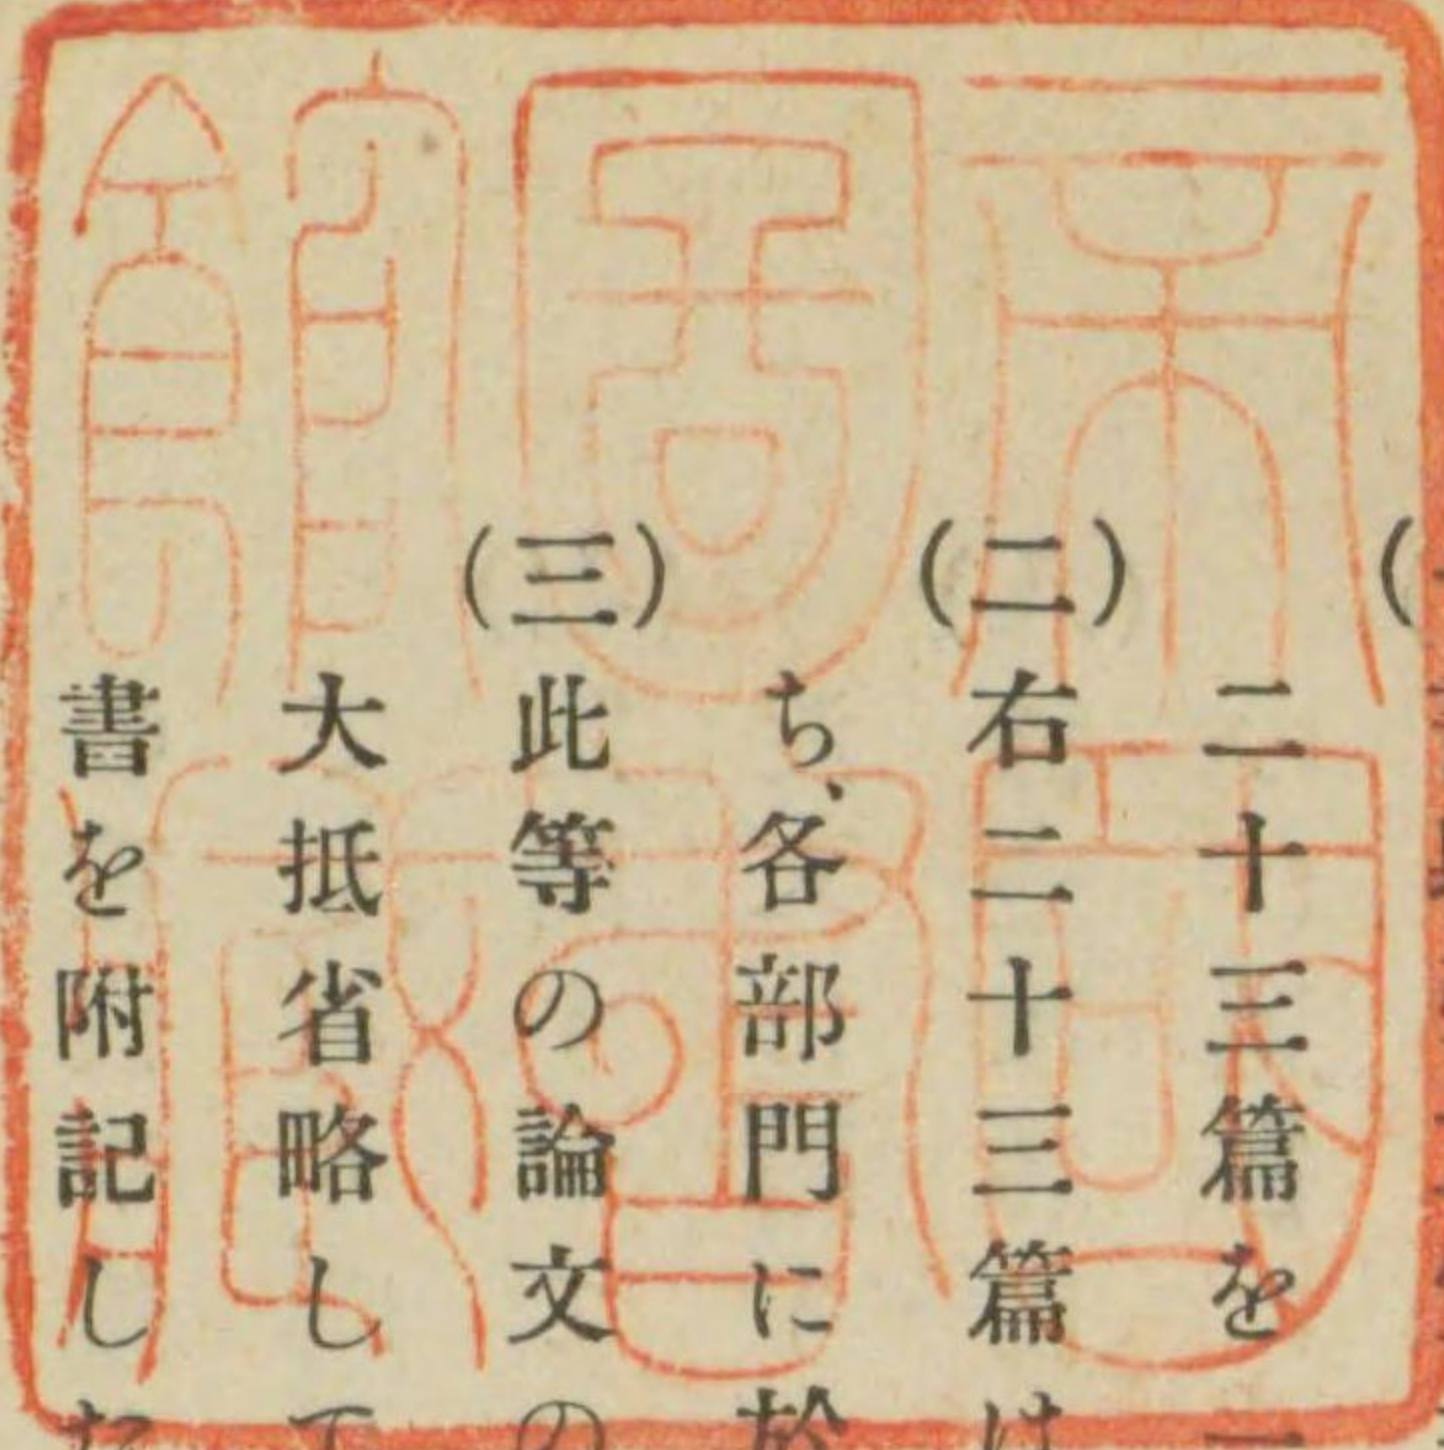 帝國圖書館藏
二十三篇を
(二)右二十三篇は
ち、各部門に於
(三)此等の論文の
大抵省略して
書を附記した